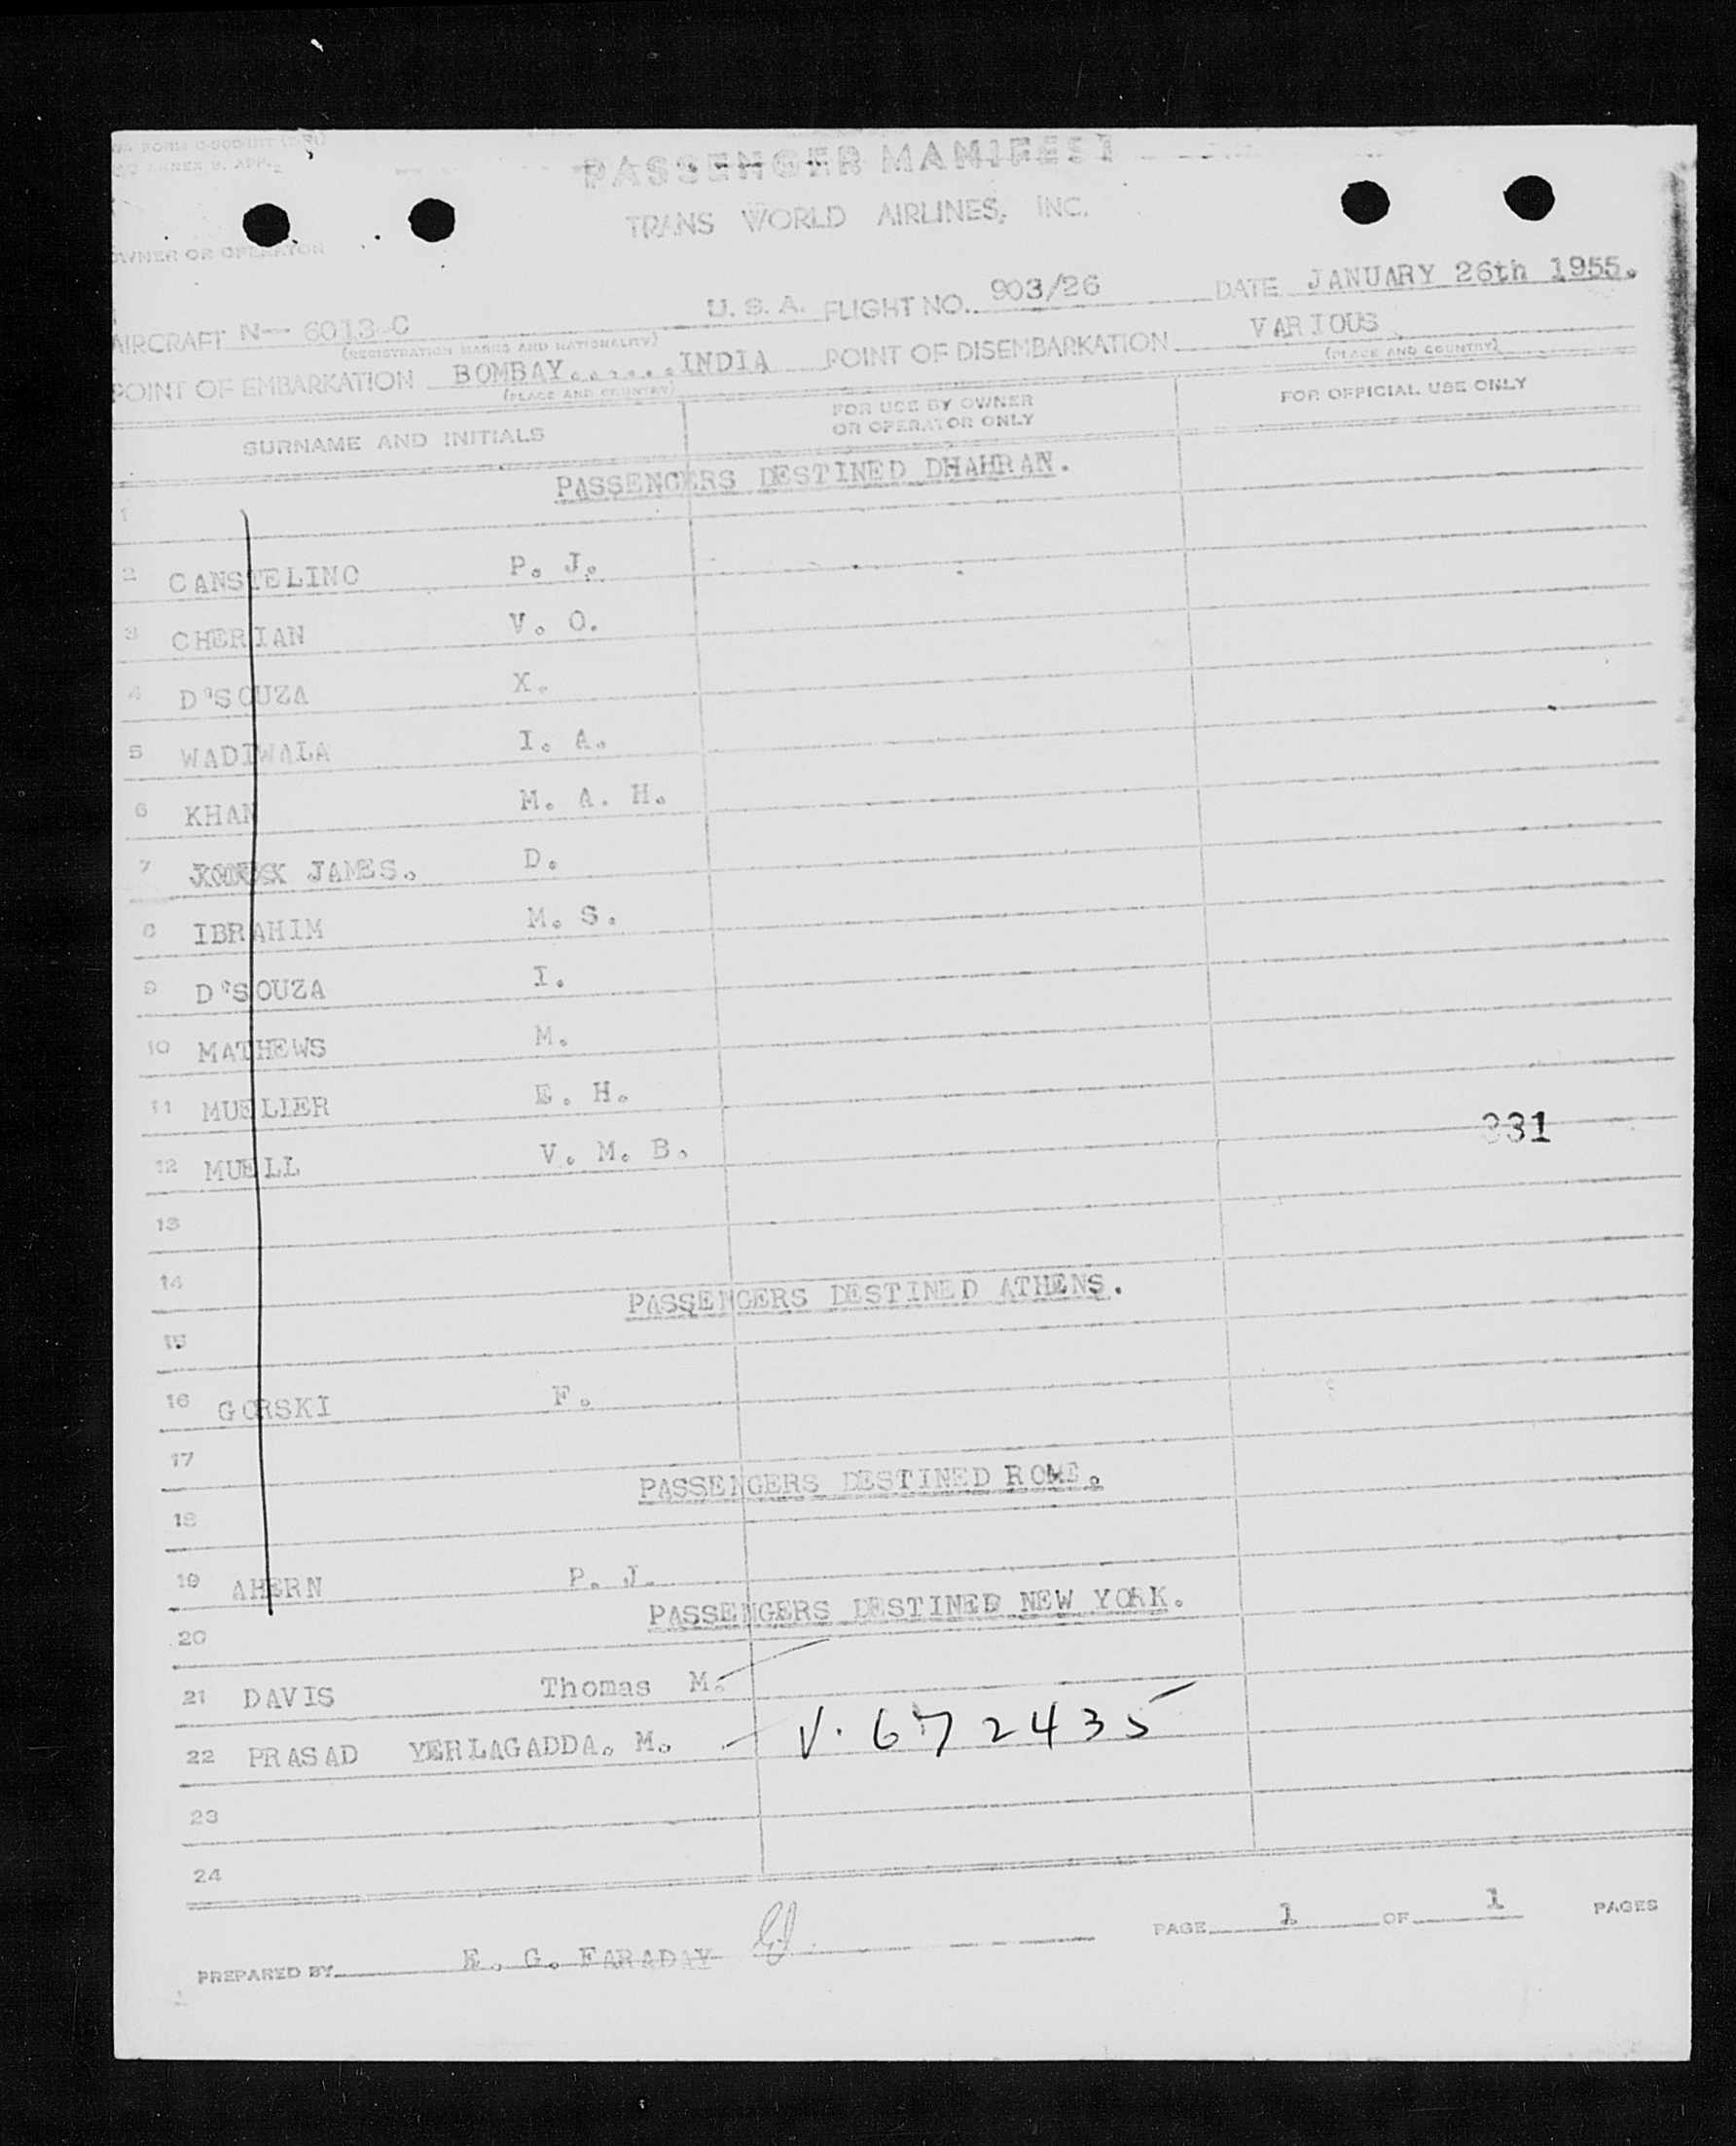 PASSENGER MANIFEST
TRANS WORLD AIRLINES, INC.
OWNER OR OPERATOR
AIRCRAFT N-- 6013 C U. S. A. FLIGHT NO. 903/26 DATE JANUARY 26th 1955.
(REGISTRATION MARKS AND NATIONALITY)
POINT OF EMBARKATION BOMBAY.......INDIA POINT OF DISEMBARKATION VARIOUS.
(PLACE AND COUNTRY) (PLACE AND COUNTRY)
SURNAME AND INITIALS FOR USE BY OWNER OR OPERATOR ONLY FOR OFFICIAL USE ONLY
PASSENGERS DESTINED DHAHRAN.
1
2 CANSTELINO P. J.
3 CHERIAN V. O.
4 D'SOUZA X.
5 WADIWALA I. A.
6 KHAN M. A. H.
7 JAMES. D.
8 IBRAHIM M. S.
9 D'SOUZA I.
10 MATHEWS M.
11 MUELLER E. H.
12 MUELL V. M. B.
331
13
14
PASSENGERS DESTINED ATHENS.
15
16 GORSKI F.
17
PASSENGERS DESTINED ROME.
18
19 AHERN P. J.
PASSENGERS DESTINED NEW YORK.
20
21 DAVIS Thomas M.
22 PRASAD YERLAGADDA. M. V. 672435
23
24
PAGE 1 OF 1 PAGES
PREPARED BY E. G. FARADAY